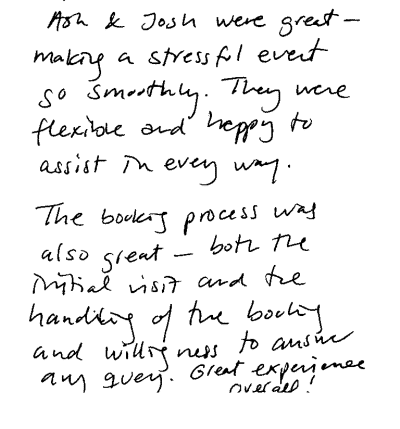 Ash & Josh were great –
making a stressful event
so smoothly. They were
flexible and happy to
assist in every way.
The booking process was
also great – both the
initial visit and the
handling of the booking
and willingness to answer
any query. Great experience
overall!